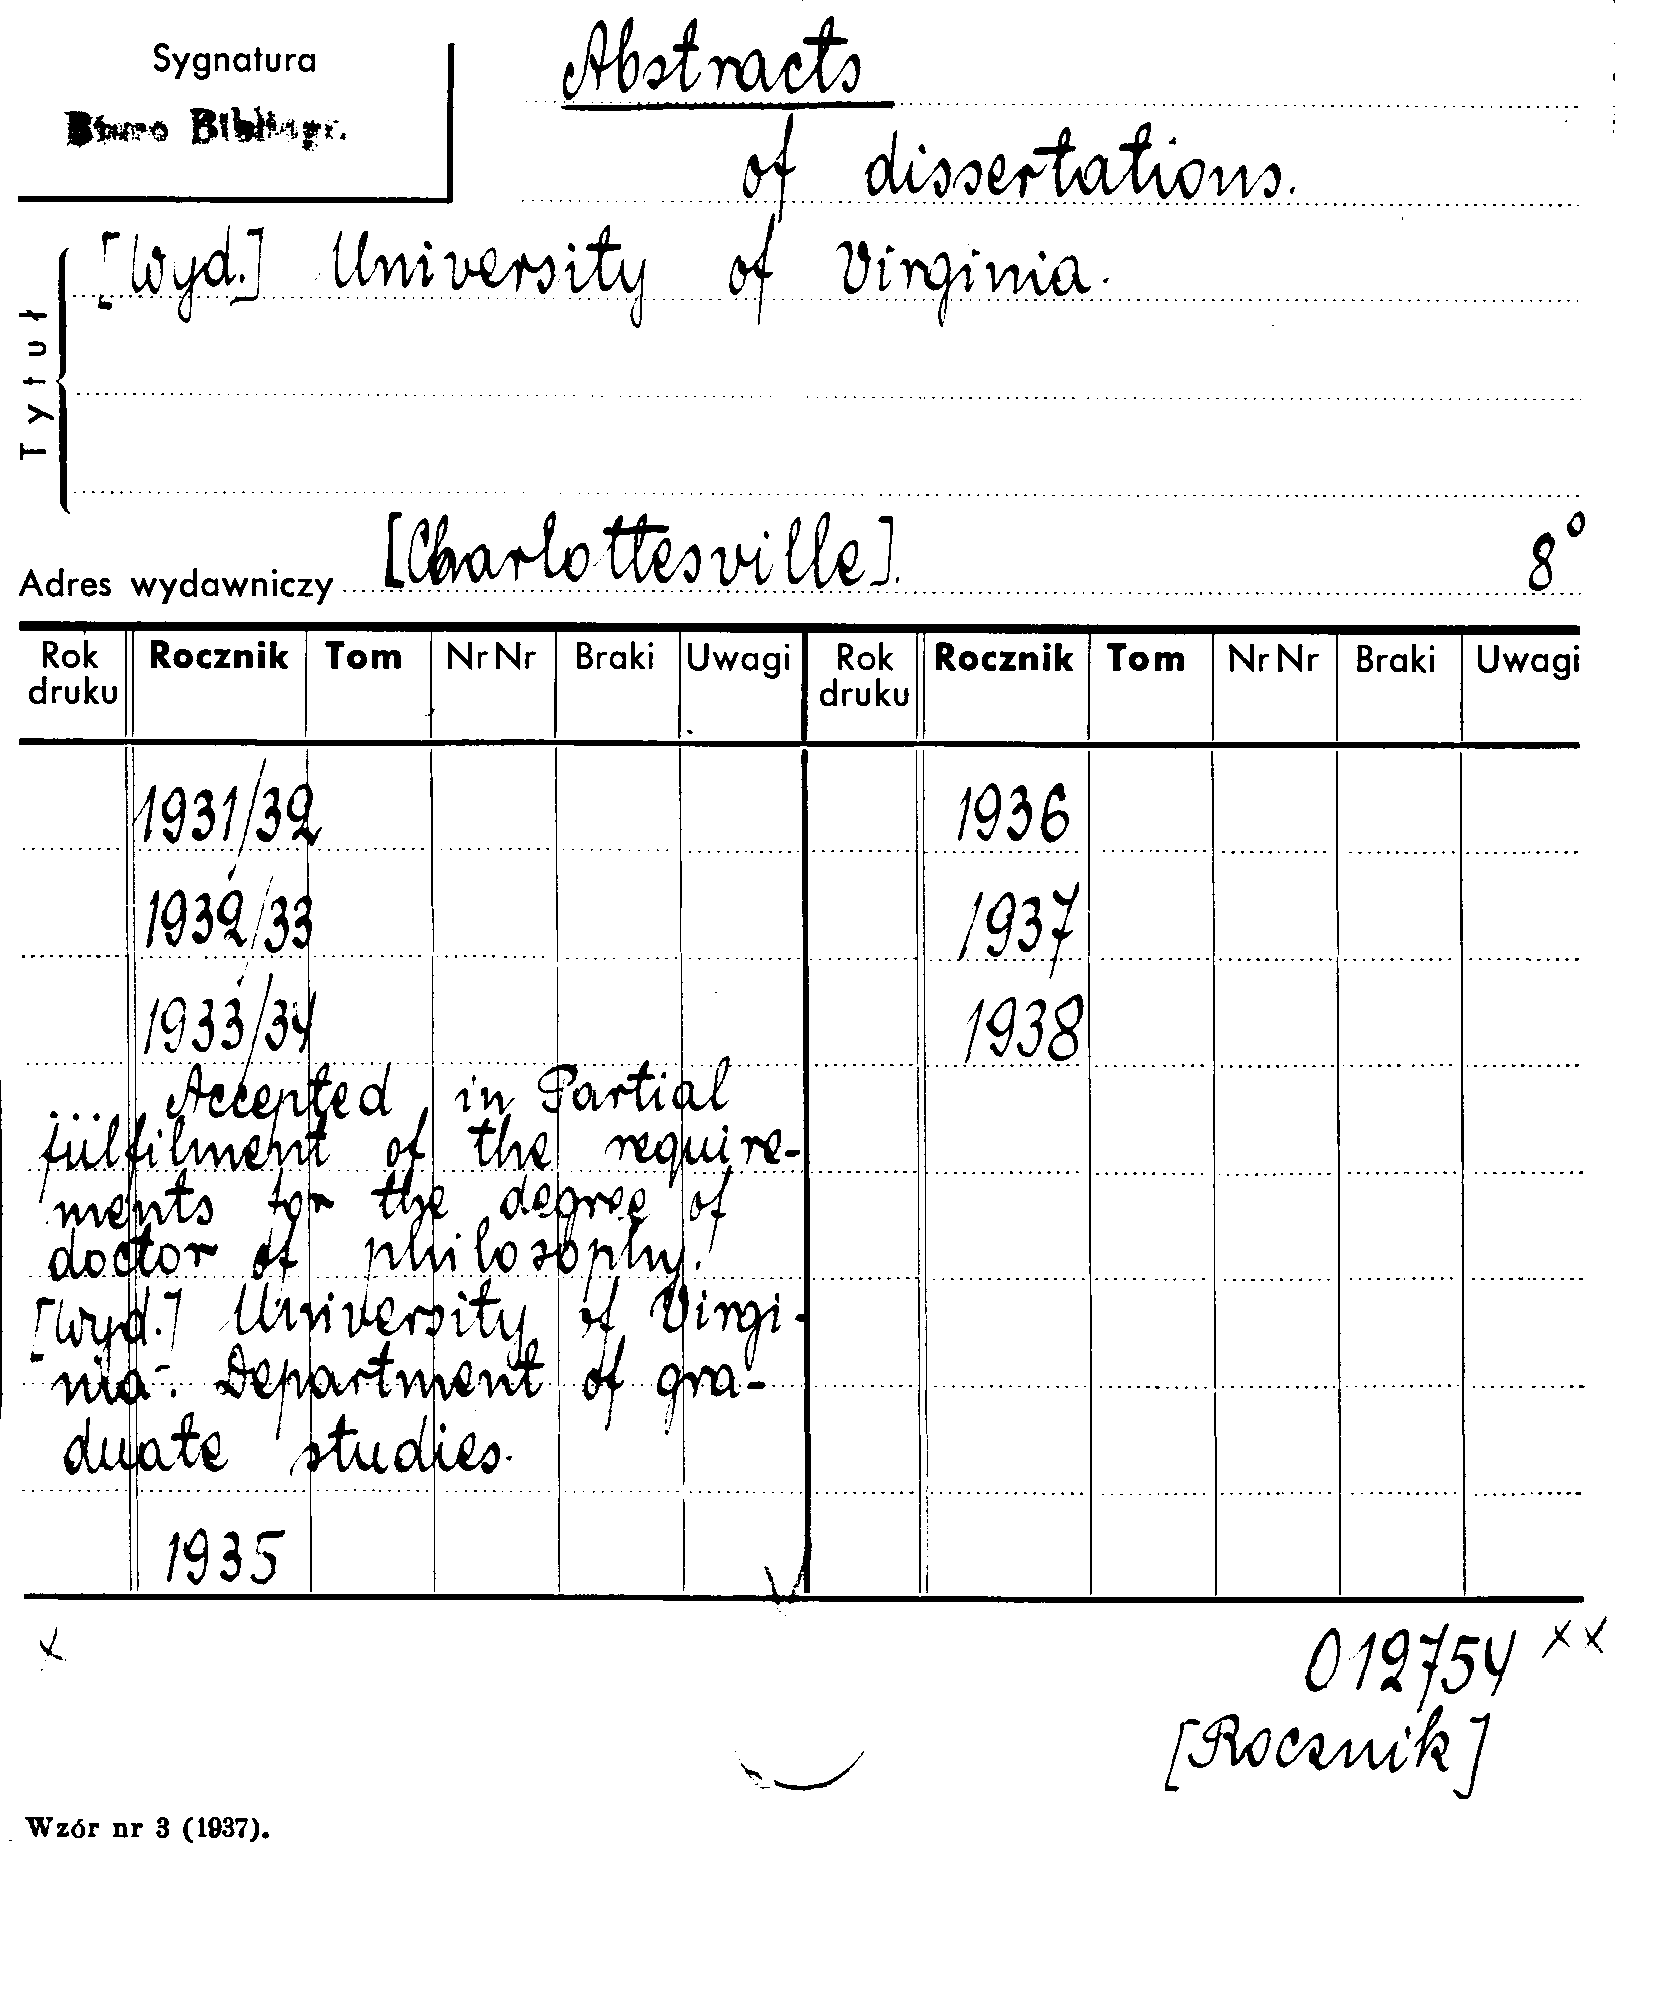 Sygnatura
Biuro Bibliogr.
Abstracts
of dissertations.
[Wyd.] University of Virginia.
Tytuł
Adres wydawniczy [Charlottesville]. 8°
Rok druku Rocznik Tom Nr Nr Braki Uwagi Rok druku Rocznik Tom Nr Nr Braki Uwagi
1931/32 1936
1932/33 1937
1933/34 1938
... Accepted in Partial
fulfilment of the require-
ments for the degree of
doctor of philosophy.
[Wyd.] University of Virgi-
nia. Department of gra-
duate studies.
1935
x 012754 x x
[Rocznik]
Wzór nr 3 (1937).